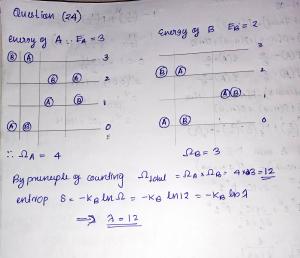 Question (24)
energy of A ∴ E_A = 3
Energy of B E_B = 2
B A 3
B A 2
A B 1
A B 0
3
B A 2
A B 1
A B 0
∴ Ω_A = 4
Ω_B = 3
By principle of counting Ω_total = Ω_A × Ω_B = 4×3 = 12
entrop S = -K_B ln Ω = -K_B ln 12 = -K_B ln λ
⇒ λ = 12